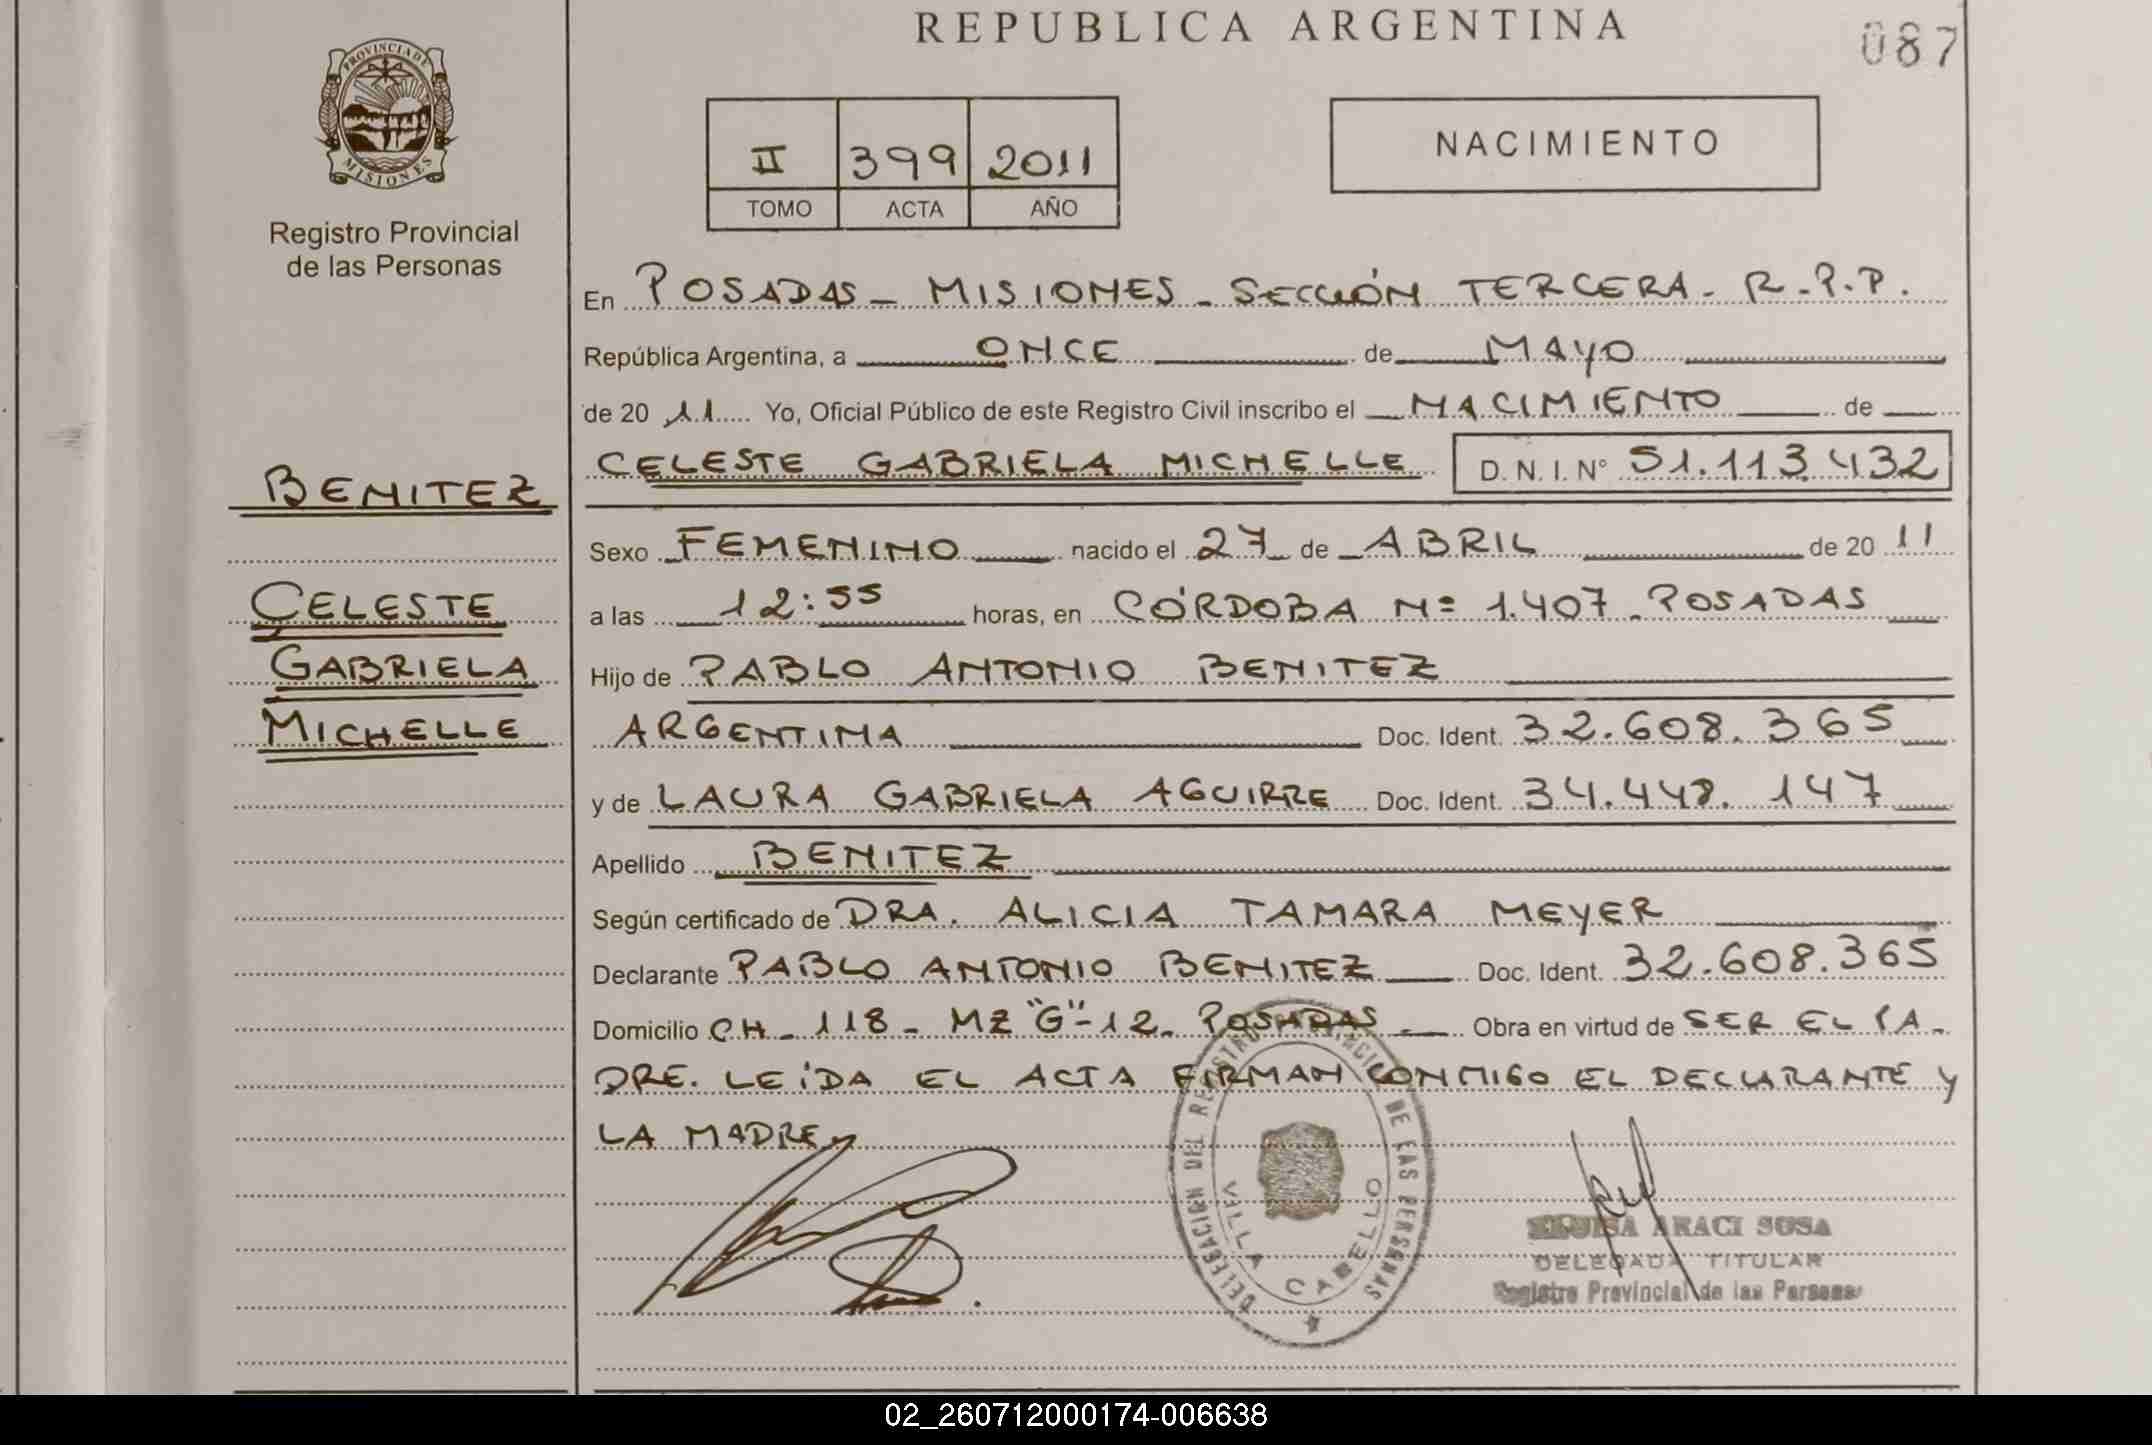 REPUBLICA ARGENTINA
087
PROVINCIA DE
MISIONES
Registro Provincial
de las Personas
II 399 2011
TOMO ACTA AÑO
NACIMIENTO
En POSADAS - MISIONES - SECCIÓN TERCERA - R.P.P.
República Argentina, a ONCE de MAYO
de 20 11 Yo, Oficial Público de este Registro Civil inscribo el NACIMIENTO de
CELESTE GABRIELA MICHELLE D. N. I. N° 51.113.432
BENITEZ
CELESTE
GABRIELA
MICHELLE
Sexo FEMENINO nacido el 27 de ABRIL de 20 11
a las 12:55 horas, en CÓRDOBA Nº 1.407 - POSADAS
Hijo de PABLO ANTONIO BENITEZ
ARGENTINA Doc. Ident. 32.608.365
y de LAURA GABRIELA AGUIRRE Doc. Ident. 34.448.147
Apellido BENITEZ
Según certificado de DRA. ALICIA TAMARA MEYER
Declarante PABLO ANTONIO BENITEZ Doc. Ident. 32.608.365
Domicilio CH - 118 - MZ "G" - 12 - POSADAS - Obra en virtud de SER EL PA-
DRE. LEÍDA EL ACTA FIRMAN CONMIGO EL DECLARANTE Y
LA MADRE
DELEGACION DEL REGISTRO PROVINCIAL DE LAS PERSONAS
VILLA CABELLO
ARACI SOSA
DELEGADA TITULAR
Registro Provincial de las Personas
02_260712000174-006638